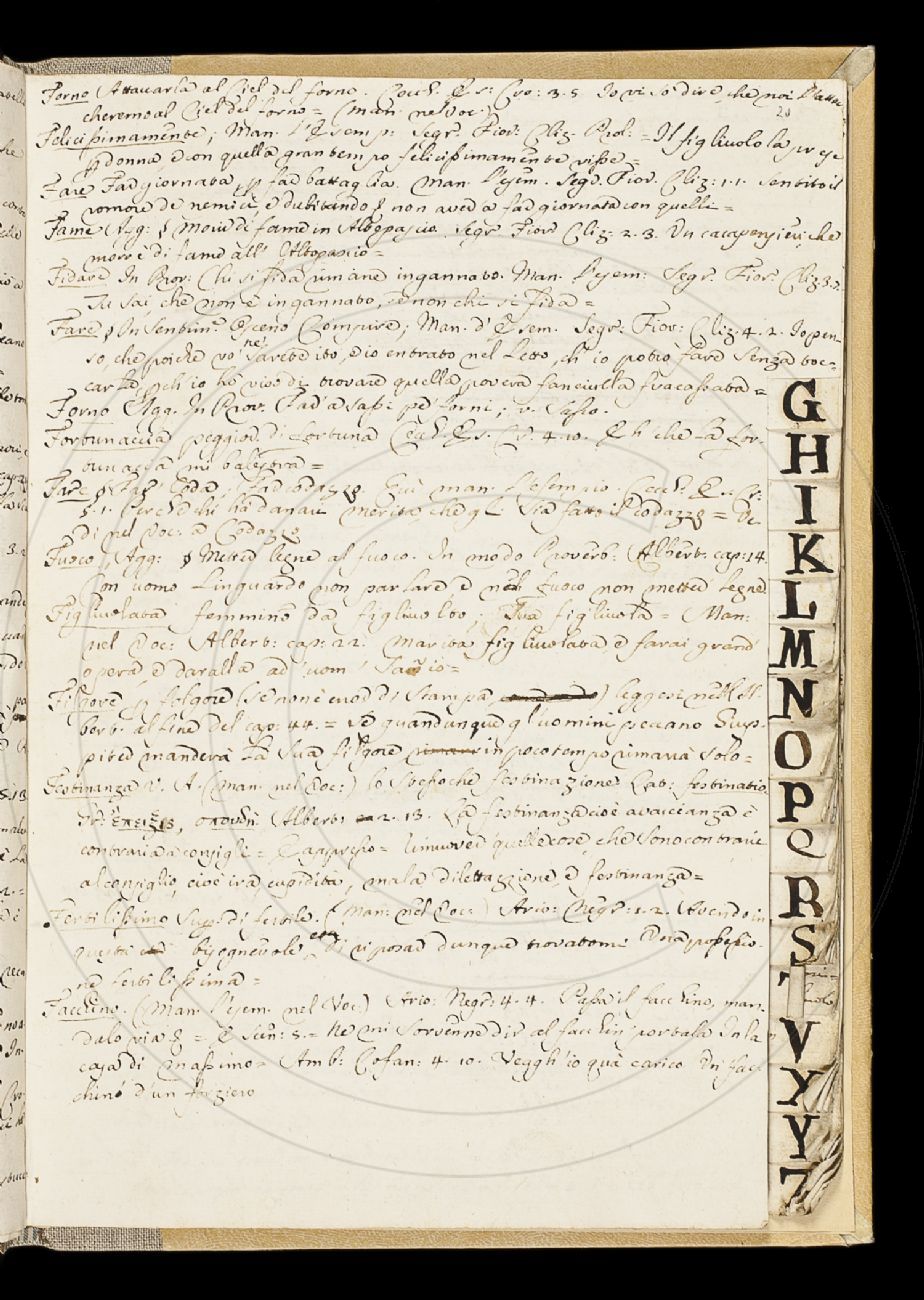 Forno (Attaccarla al Ciel del forno. Cecch. Es: Cro: 3. 5 Io vi so dire, che noi l'attac
cheremo al Ciel del forno = (Man. nel Voc:)
20
Felicissimamente; Man. l'Esemp: Segr. Fior. Cliz. Prol: = Il figliuolo la prese
p donna e con quella gran tempo felicissimamente visse =
Fare Far giornata, p far battaglia. Man. l'esem. Segr. Fior. Cliz: 1. 1. Sentito il
romore de nemici, e dubitando non aver a far giornata con quelli =
Fame (Ag: Morir di fame in Altopascio. Segr Fior Cliz: 2. 3. Un cacapensieri che
morre' di fame all' Altopascio =
Fidare In Prov: Chi si fida rimane ingannato. Man. l'esem: Segr. Fior. Cliz. 3. 7.
Tu sai, che non è ingannato, se non chi si fida =
Fare In sentim: Osceno Compire; Man. d'Esem. Segr: Fior: Cliz. 4. 2. Io pen
so, che poiche vo' ne sarete ito, e io entrato nel Letto, ch' io potrò fare senza toc-
carla, ch'io ho viso di trovare quella povera fanciulla fracassata =
Forno Agg. In Prov. Far a sassi pe' forni; v. Sasso.
Fortunaccia peggior. di Fortuna Cecch. Es. Cr. 4. 10. Eh che la For-
tunaccia mi balestra =
Fare Far Coda, Far codazzo. Più man. l'esempio. Cecch. Es. Cr:
5. 1. Perchè chi ha danari merita, che gl. sia fatto il Codazzo = Ve
di nel Voc: a Codazzo
Fuoco (Agg: Metter legne al fuoco. In modo Proverb: (Albert: cap: 14.
Con uomo Linguardo non parlare, e nel fuoco non metter legne
Figliuolata femmina da figliuolto; figliuola = Man:
nel Voc: Albert: cap: 22. Marita figliuolata, e farai grand'
opera, e daralla ad uom' Savio =
Filgore, p folgore (se non è error di stampa) leggesi nell' Al-
bert: al fine del cap: 44. = Se quandunque gl'uomini peccano Iup-
piter manderà la sua filgore in poco tempo rimarrà solo =
Festinanza V. A. (Man. nel Voc:) lo stesso che festinazione Lat: festinatio
Gr: ἔπειξις, σπουδή Albert: 2. 13. La festinanza cioè avaccianza è
contraria a consigli = E appresso = limuover quelle cose, che sono contrarie
al consiglio, cioè ira, cupidità, mala dilettazione, e festinanza =
Fertilissimo Sup. di fertile. (Man: nel Voc:) Ario: Negr: 1. 2. Avendo in
questa bisognevole, di riposar dunque trovatomi possessio-
ne fertilissima =
Facchino. (Man. l'esem. nel Voc.) Ario: Negr: 4. 4. Passa il facchino, man-
dalo via = E Scen: 5. = Ne mi sovvenne dir al facchin portala In la
casa di Massimo = Amb: Cofan: 4. 10. Vegg'io quà carico Un fac-
chino d'un forziero
G
H
I
K
L
M
N
O
P
Q
R
S
T
V
X
Y
Z